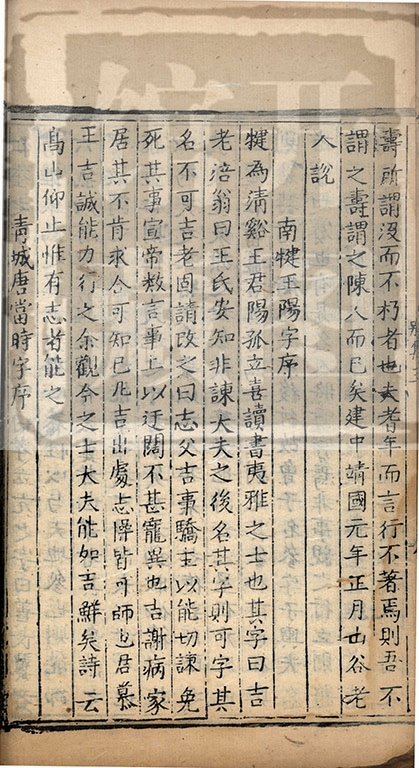 壽所謂沒而不朽者也夫耆年而言行不著焉則吾不
謂之壽謂之陳人而已矣建中靖國元年正月山谷老
人説
南犍王陽字序
犍為清谿王君陽孤立喜讀書夷雅之士也其字曰吉
老涪翁曰王氏安知非諫大夫之後名其字則可字其
名不可吉老固請改之曰志父吉事驕王以能切諫免
死其事宣帝数言事上以迂闊不甚寵異也吉謝病家
居其不肯求合可知已凡吉出處志操皆可師也居慕
王吉誠能力行之余觀今之士大夫能如吉鮮矣詩云
高山仰止惟有志者能之
青城唐當時字序